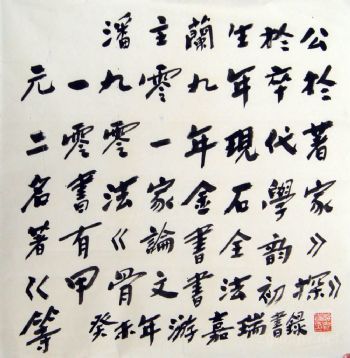 潘主蘭生於公
元一九零九年卒於
二零零一年現代著
名書法家金石學家
著有《論書全韵》
《甲骨文書法初探》
等 癸未年游嘉瑞書錄